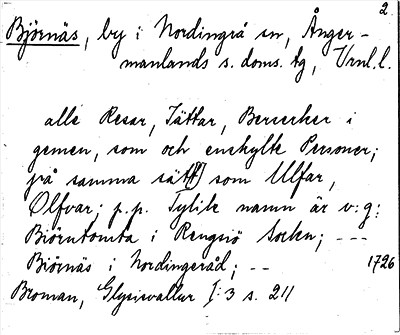 2
Björnäs, by i Nordingrå sn, Ånger-
manlands s. doms. tg, Vrnl. l.
alle Resar, Jättar, Berserker i
gemen, som och enskylte Personer;
på samma sätt som Ulfar,
Olfvar; p.p. Tylik namn är v: g:
Biörntomta i Rengsiö Sockn; ---
Biörnäs i Nordingeråd; -- 1726
Broman, Glysisvallur I: 3 s. 211